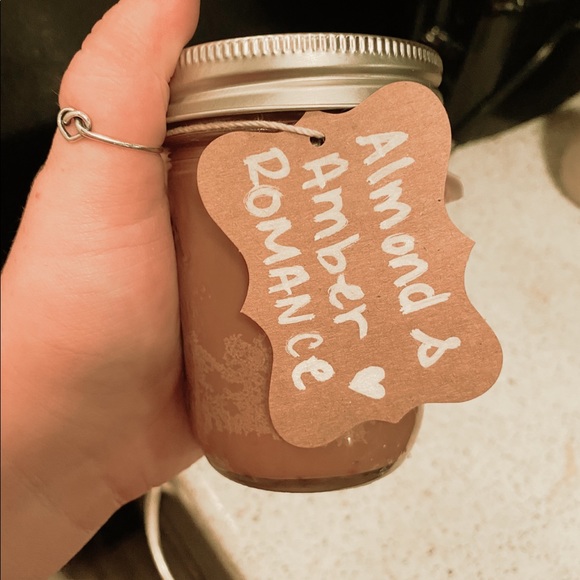 Almond &
Amber
ROMANce